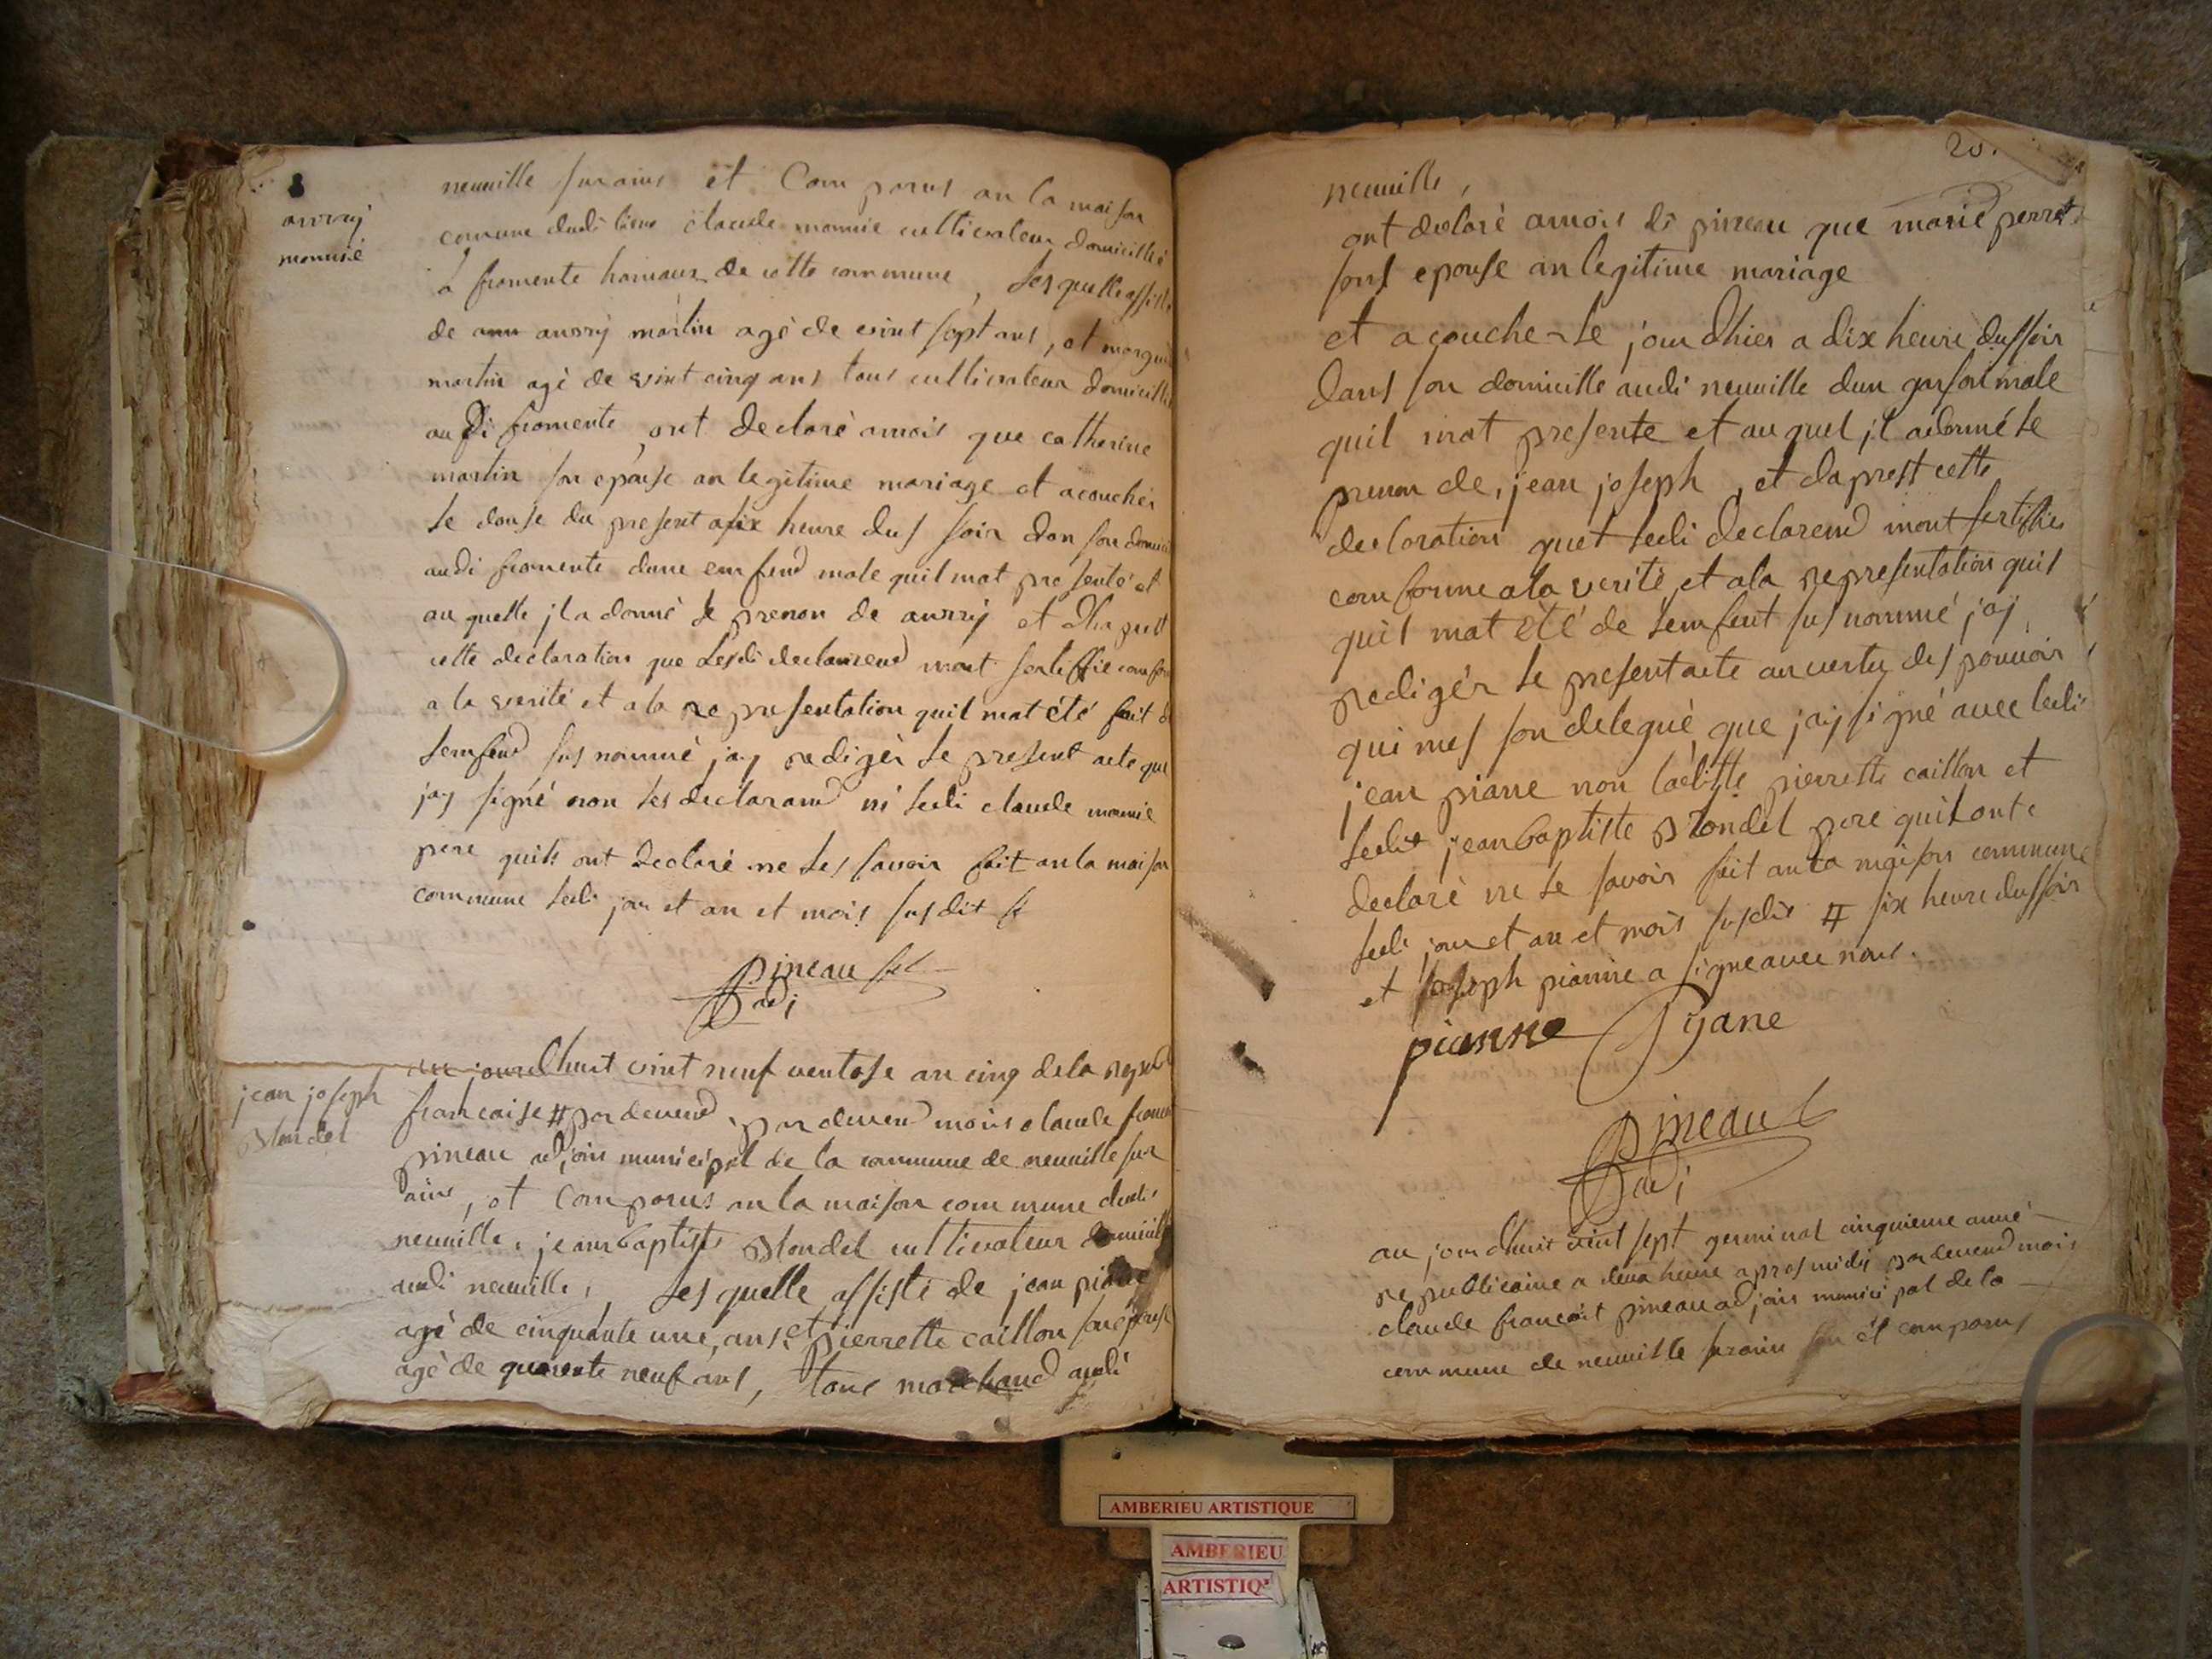 anrrij
monnié
neuville surains et Com parus an la maison
comune dudi lieux claude monnié cultivateur domicillié
a fromente hamaux de cette commune, Les quelle assisté
de anrrij martin agé de vint sept ans, et
martin agé de vint cinq ans tous cultivateur domicillié
audi fromente, ont declaré amois que catherine
martin son epouse an legitime mariage et acouchér
le douse du present a six heure dus soir dan son
audi fromente dune emfend male quil mat presenté et
au quelle jl a donné le prenon de anrrij et
cette declaration que lesdi declarend mont sertiffié
a la verité et a la representation quil mat été fait
lemfend sus nommé jay redigér le present acte que
jay signé non les declarand ni ledi claude monnié
pere quils ont declaré ne les savoir fait an la maison
commune ledi jour et an et mois sus dit
pineau
adj
jean joseph
blondel
au jourdhuit vint neuf ventose an cinq de la
francaise # par devend, par devend mois claude
pineau adjoin municipal de la commune de neuville sur
ains, et comparus an la maison commune dudi
neuville, jeanbaptiste blondel cultivateur
audi neuville, Les quelle assisté de jean
agé de cinquante une, ans, et pierrette caillon son epouse
agé de quarente neuf ans, tous marchand audi
20.
neuville,
ont declaré amois di pineau que marie perret
sont epouse an legitime mariage
et a couche le jour dhier a dix heure dussoir
dans son domicille audi neuville dun garson male
quil mat presente et au quel jl adonné le
prenon de, jean joseph, et daprest cette
declaration quet ledi declarend mont sertiffier
comforme a la verité et ala representation quil
quil mat été de lemfent sus nommé jaj
redigér le present acte an vertu des pouvoir
qui mes son delegué, que jaj signé avec ledi
jean pianne non ladite pierrette caillon et
ledit jeanbaptiste blondel pere quil ont
declaré ne le savoir fait an la maison commune
ledi jour et an et mois susdit # six heure dussoir
et joseph pianne a signe avec nous.
pianne Pyane
pineau
adj
au jourdhuit vint sept germinal cinquieme anné
republicaine a deux heure apres midis pardevend mois
claude francoit pineau adjoin municipal de la
commune de neuville surain et comparus
AMBERIEU ARTISTIQUE
AMBERIEU
ARTISTIQ